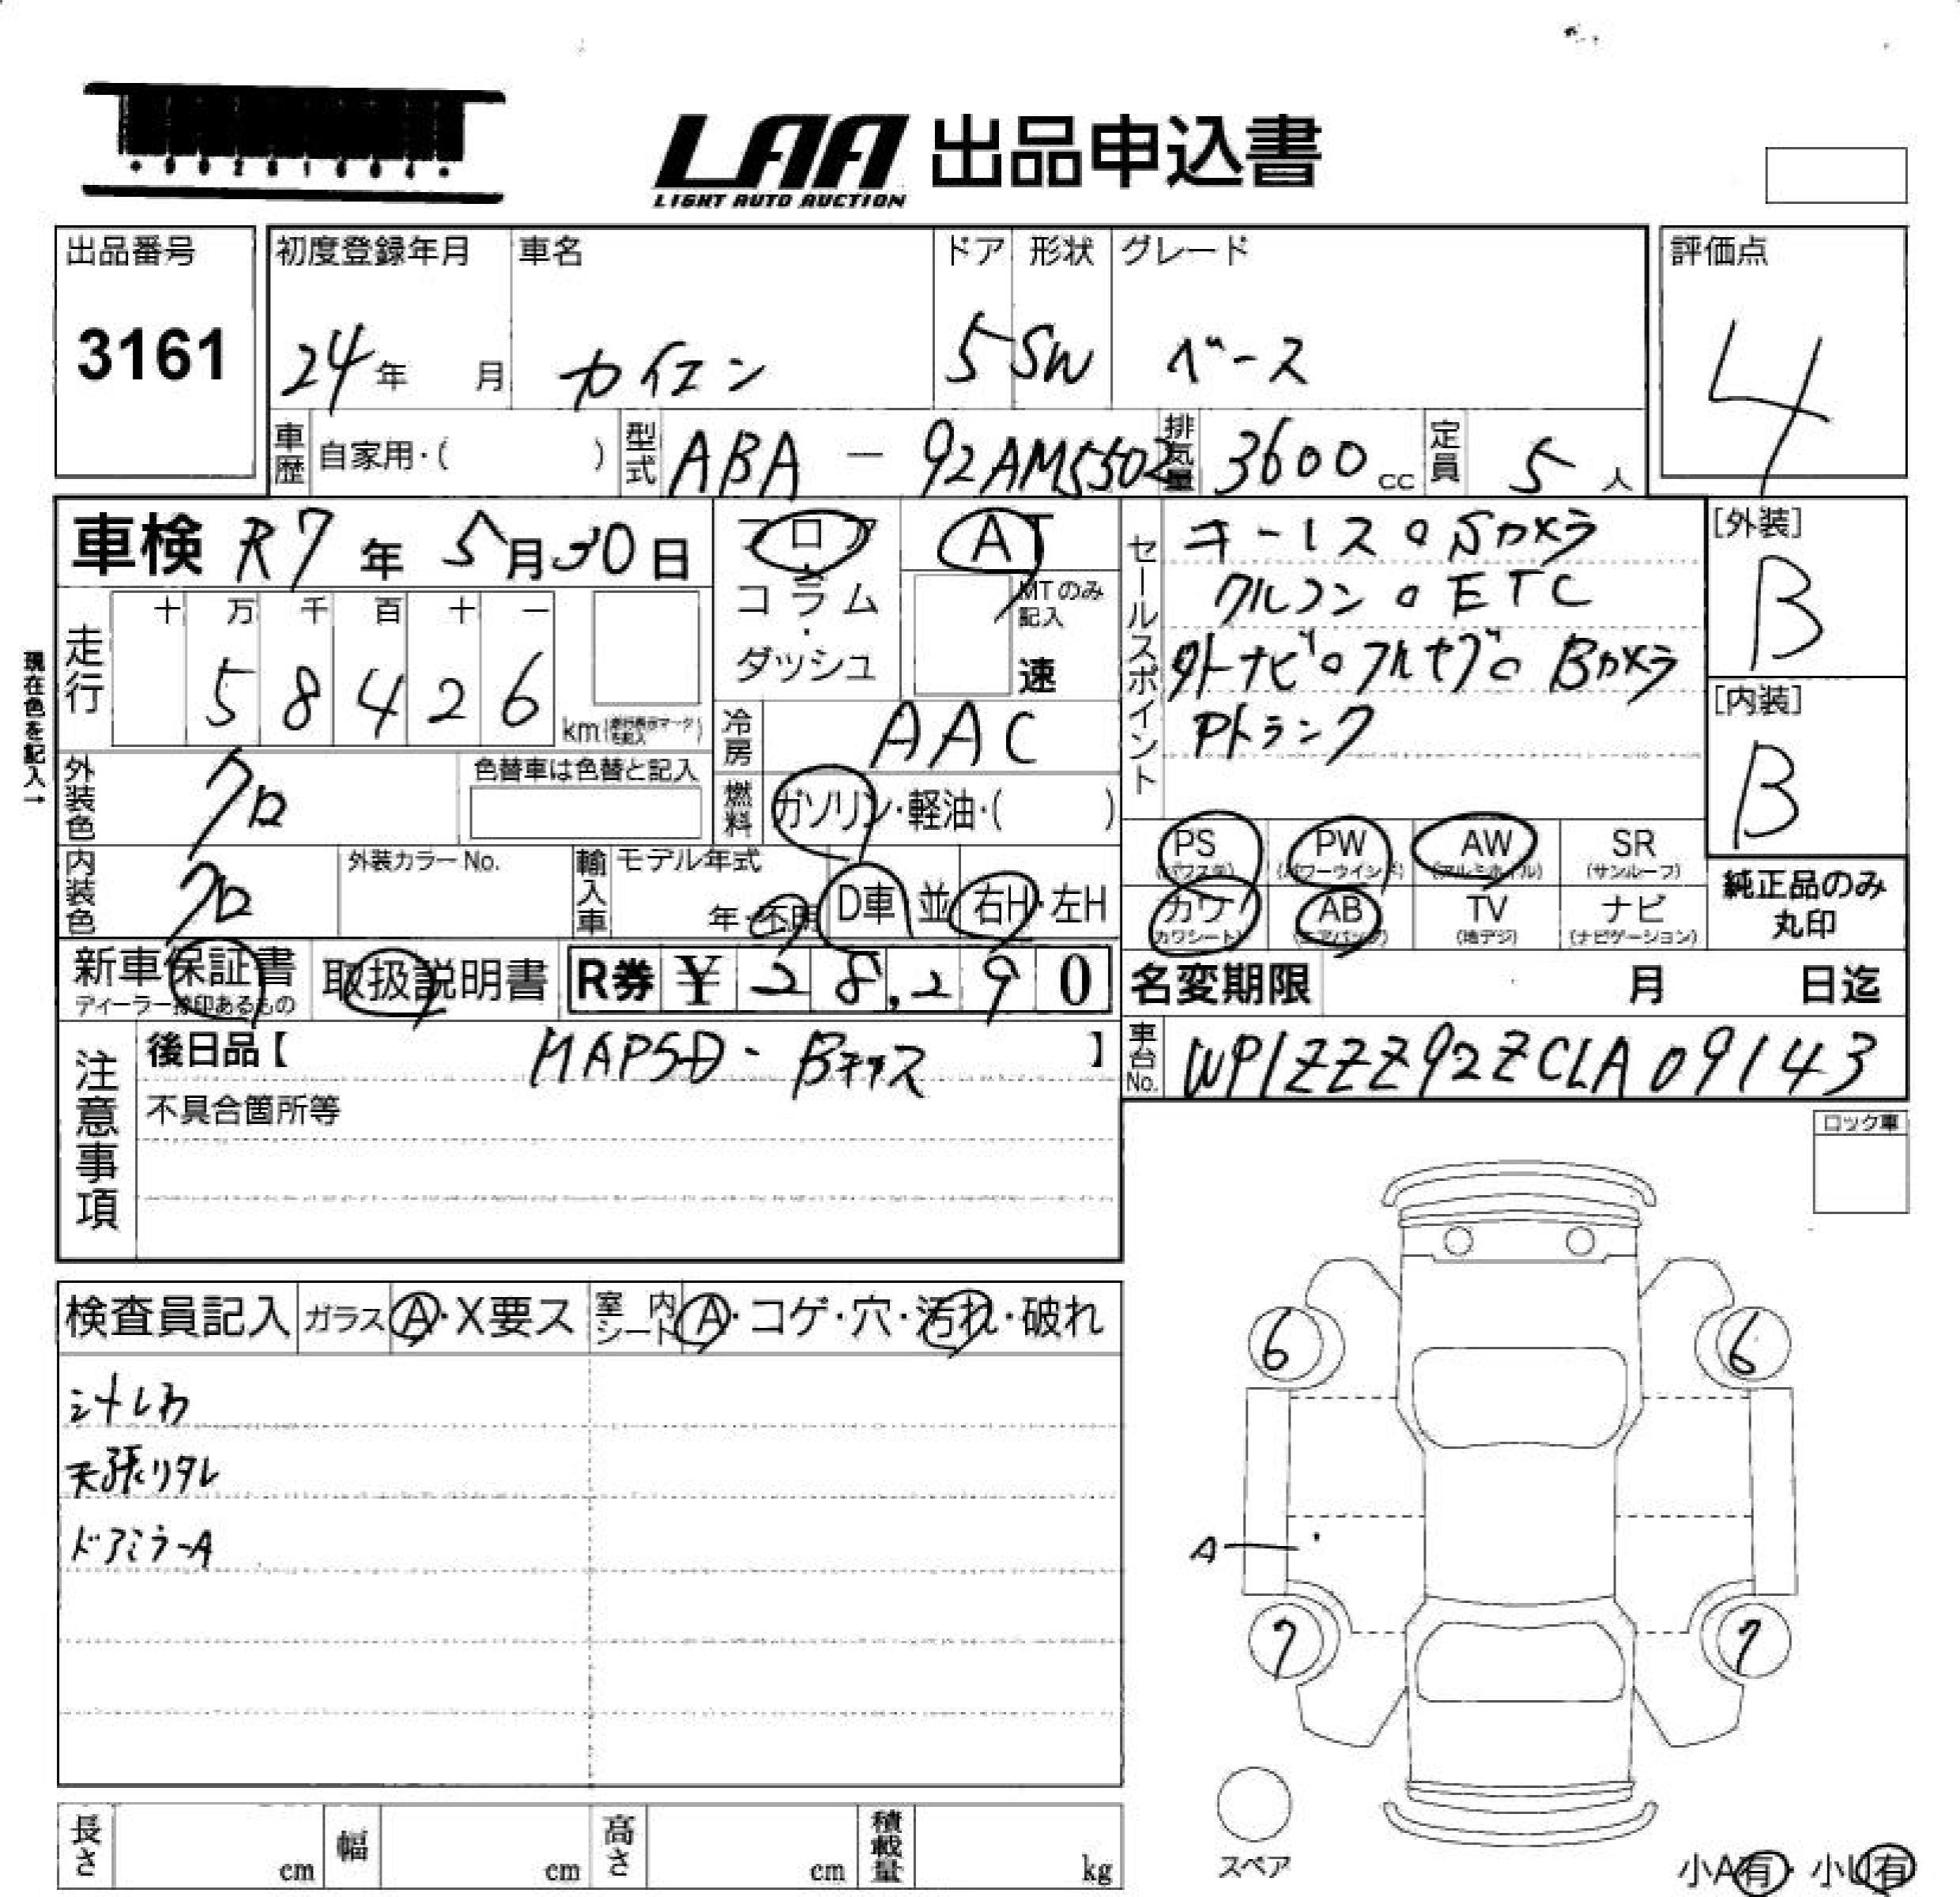 LAA 出品申込書
LIGHT AUTO AUCTION
出品番号
3161
初度登録年月
24年 月
車名
カイエン
ドア
5
形状
SW
グレード
ベース
評価点
4
車歴 自家用・( )
型式 ABA - 92AM5502
排気量 3600cc
定員 5人
車検 R7年5月30日
フロア
コラム
・
ダッシュ
AT
MTのみ記入
速
走行
十 万 千 百 十 一
5 8 4 2 6 km
現在色を記入→
冷房 AAC
燃料 ガソリン・軽油・( )
外装色 クロ
色替車は色替と記入
内装色 クロ
外装カラーNo.
輸入車
モデル年式
年・不明
D車・並 右H・左H
セールスポイント
キーレス。Sカメラ
クルコン。ETC
外ナビ。フルセグ。Bカメラ
Pトランク
[外装]
B
[内装]
B
PS
(パワステ)
PW
(パワーウインド)
AW
(アルミホイル)
SR
(サンルーフ)
カワ
(カワシート)
AB
(エアバック)
TV
(地デジ)
ナビ
(ナビゲーション)
純正品のみ
丸印
新車保証書
ディーラー捺印あるもの
取扱説明書
R券 ¥ 28,290
名変期限 月 日迄
車台No. WP1ZZZ92ZCLA09143
注意事項
後日品【 MAPSD・Bキップス 】
不具合箇所等
ロック車
検査員記入
ガラス A・X要ス
室内シート A・コゲ・穴・汚れ・破れ
シートしわ
天張りタレ
ドアミラーA
6 6
A
7 7
スペア
長さ cm
幅 cm
高さ cm
積載量 kg
小A有・小U有